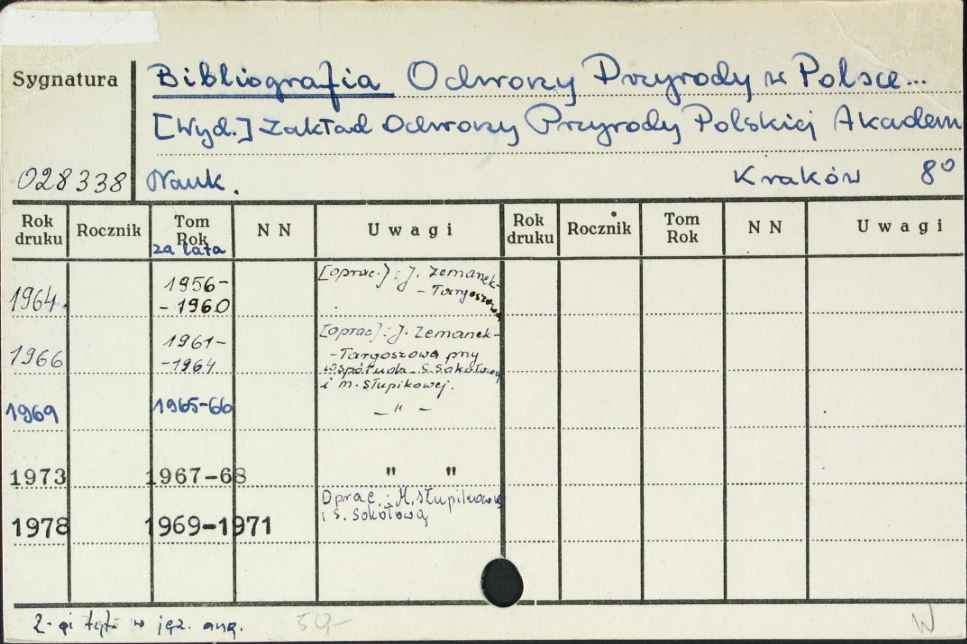 Sygnatura
Bibliografia Ochrony Przyrody w Polsce...
[Wyd.] Zakład Ochrony Przyrody Polskiej Akadem
028338 Nauk. Kraków 8⁰
Rok druku Rocznik Tom Rok za lata N N Uwagi Rok druku Rocznik Tom Rok N N Uwagi
1964. 1956-
- 1960
[oprac.]: J. Zemanek-
- Targoszowa
1966 1961-
-1964
[oprac]: J. Zemanek-
-Targoszowa pny
współuda. S. Sokołowej
i M. Słupikowej.
1969 1965-66 — " —
1973 1967-68 " "
1978 1969-1971
Oprac.: M. Słupikowa
i S. Sokołową
2-gi tytł w jęz. ang. 50,-
W